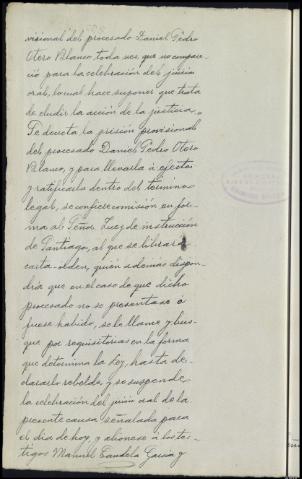 visional del procesado Daniel Pedro
Otero Blanco, toda vez que no compare-
ció para la celebración del juicio
oral, lo cual hace suponer que trata
de eludir la acción de la justicia,
Se decreta la prision provisional
del procesado Daniel Pedro Otero
Blanco, y para llevarla á efecto
y ratificarla dentro del término
legal, se confiere comisión en for-
ma al Señor Juez de instrucción
de Santiago, al que se librará
carta-orden, quién además dispon-
dría que en el caso de que dicho
procesado no se presentase ó
fuese habido, se le llame y bus-
que por requisitorias en la forma
que determina la Ley, hasta de-
clararlo rebelde, y se suspende
la celebración del juicio oral de la
presente causa señalada para
el día de hoy, y abónese á los tes-
tigos Manuel Candela García y